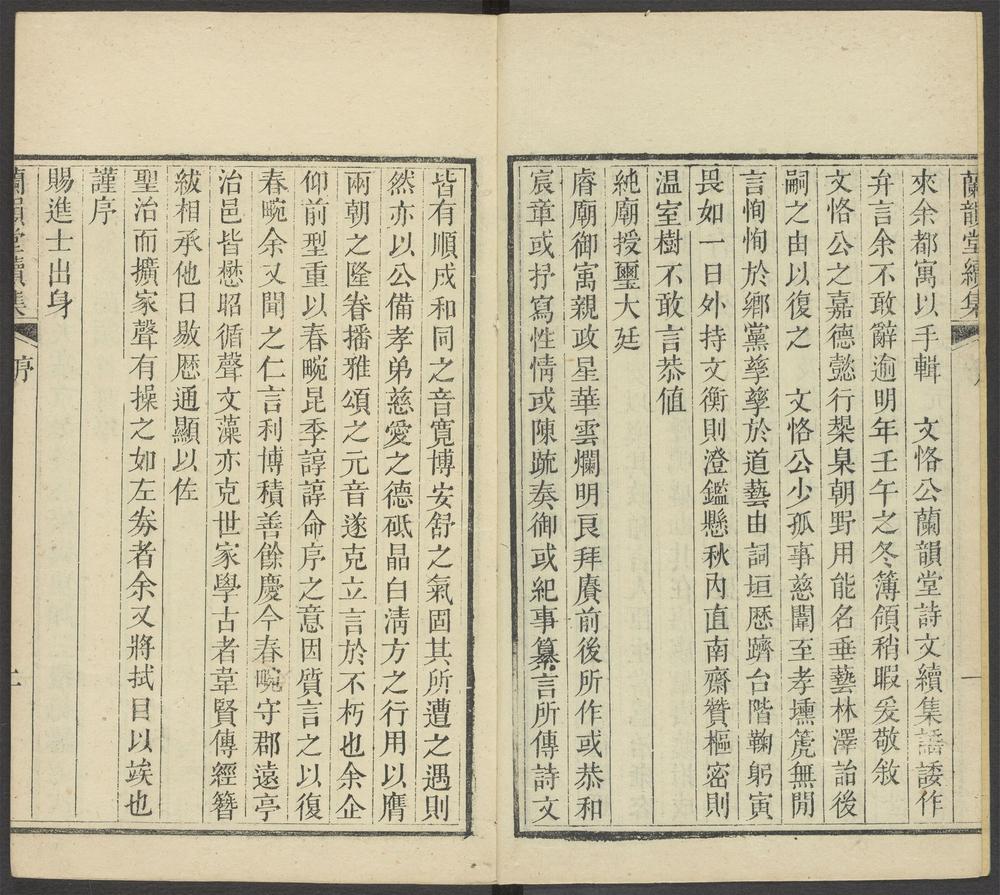 蘭韻堂續集
來余都寓以手輯　文恪公蘭韻堂詩文續集譸諉作
弁言余不敢辭逾明年壬午之冬簿領稍暇爰敬敘
文恪公之嘉德懿行槼臬朝野用能名垂藝林澤詒後
嗣之由以復之　文恪公少孤事慈闈至孝壎箎無閒
言恂恂於鄉黨孳孳於道藝由詞垣歷躋台階鞠躬寅
畏如一日外持文衡則澄鑑懸秋內直南齋贊樞密則
温室樹不敢言恭値
純廟授璽大廷
睿廟御㝢親政星華雲爛明良拜賡前後所作或恭和
宸章或抒寫性情或陳䟽奏御或紀事纂言所傳詩文
皆有順成和同之音寬博安舒之氣固其所遭之遇則
然亦以公備孝弟慈愛之德砥晶白淸方之行用以膺
兩朝之隆眷播雅頌之元音遂克立言於不朽也余企
仰前型重以春畹昆季諄諄命序之意因質言之以復
春畹余又聞之仁言利博積善餘慶今春畹守郡遠亭
治邑皆懋昭循聲文藻亦克世家學古者韋賢傳經簪
紱相承他日敭歷通顯以佐
聖治而擴家聲有操之如左券者余又將拭目以竢也
謹序
賜進士出身
蘭韻堂續集
序
二